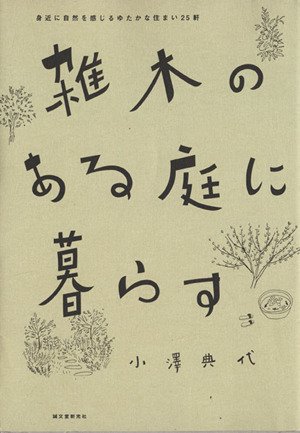 身近に自然を感じるゆたかな住まい25軒
雑木の
ある庭に
暮らす
小澤典代
誠文堂新光社